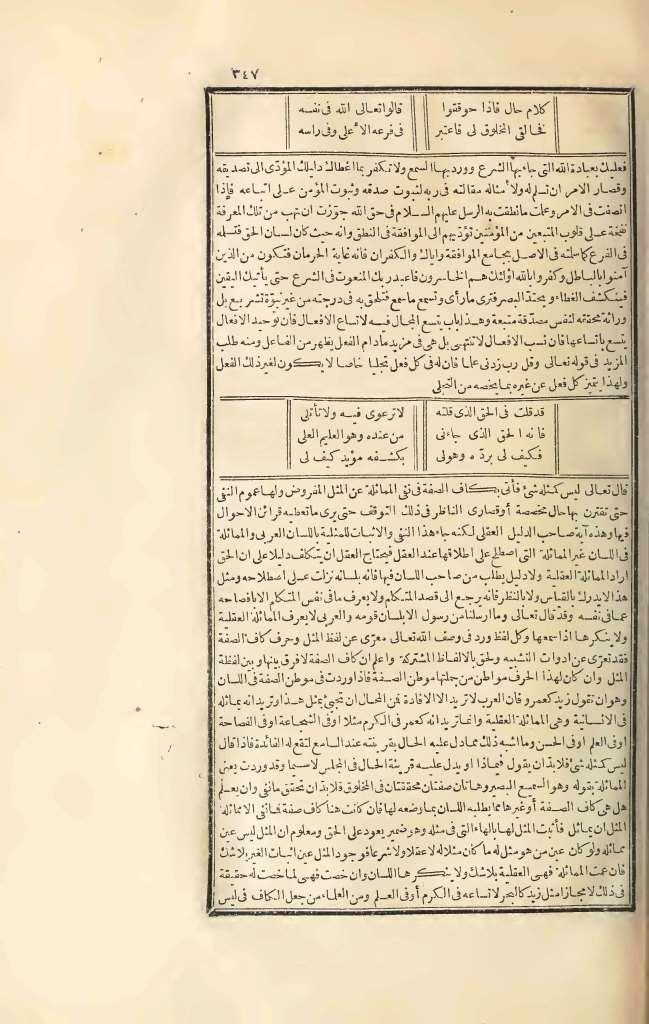 ٣٤٧
كلام حال فاذا حوققتوا قالوا تعالى الله فى نفسه
فخالقى المخلوق لى فاعتبر فى فرعه الأعلى وفى راسه
فعليك بعبادة الله التى جاء بها الشرع وورد بها السمع ولا تكفر بما أعطاك دليلك المؤدّى الى تصديقه
وقصار الامر ان تسلم له ولأمثاله مقالته فى ربه لثبوت صدقه وثبوت المؤمن على اتباعه فاذا
انصفت فى الامر وعلمت ما نطقت به الرسل عليهم السلام فى حق الله جوّزت ان تهب من تلك المعرفة
نفحة على قلوب المتبعين من المؤمنين تؤدّيهم الى الموافقة فى النطق وانه حيث كان لسان الحق فتسلمه
فى الفرع كما سلمته فى الاصل بجامع الموافقة واياك والكفران فانه غاية الحرمان فتكون من الذين
آمنوا بالباطل وكفروا بالله اولئك هم الخاسرون فاعبد ربك المنعوت فى الشرع حتى يأتيك اليقين
فينكشف الغطاء ويحتدّ البصر فترى ما رأى وتسمع ما سمع فتلحق به فى درجته من غير نبوّة تشريع بل
وراثة محققة لنفس مصدّقة متبعة وهذا باب يتسع المجال فيه لاتساع الافعال فان توحيد الافعال
يتسع باتساعها فان نسب الافعال لا تنتهى بل هى فى مزيد ما دام الفعل يظهر من الفاعل ومنه طلب
المزيد فى قوله تعالى وقل رب زدنى علما فان له فى كل فعل تجليا خاصا لا يكون لغير ذلك الفعل
ولهذا يتميز كل فعل عن غيره بما يخصه من التجلى
قد قلت فى الحق الذى قلته لا ترعوى فيه ولا تأتلى
فانه الحق الذى جاءنى من عنده وهو العليم العلى
فكيف لى بردّه وهو لى بكشفه مؤيد كيف لى
قال تعالى ليس كمثله شئ فأتى بكاف الصفة فى نفى المماثلة عن المثل المفروض ولها عموم النفى
حتى تقترن بها حال مخصصة أو قصارى الناظر فى ذلك التوقف حتى يرى ما تعطيه قرائن الاحوال
فيها وهذه آية صاحب الدليل العقلى لكنه جاء هذا النفى والاثبات للمثلية باللسان العربى والمماثلة
فى اللسان غير المماثلة التى اصطلح على اطلاقها عند العقل فيحتاج العقل ان يتكلف دليلا على ان الحق
اراد المماثلة العقلية ولا دليل يطلب من صاحب اللسان فيها فانه بلسانه نزلت على اصطلاحه ومثل
هذا لا يدرك بالقياس ولا بالنظر فانه يرجع الى قصد المتكلم ولا يعرف ما فى نفس المتكلم الا بافصاحه
عما فى نفسه وقد قال تعالى وما ارسلنا من رسول الا بلسان قومه والعربى لا يعرف المماثلة العقلية
ولا ينكرها اذا سمعها وكل لفظ ورد فى وصف الله تعالى معرّى عن لفظ المثل وحرف كاف الصفة
فقد تعرّى عن ادوات التشبيه ولحق بالالفاظ المشتركة واعلم ان كاف الصفة لا فرق بينها وبين لفظة
المثل وان كان لهذا الحرف مواطن من جملتها موطن الصفة فاذا وردت فى موطن الصفة فى اللسان
وهو ان تقول زيد كعمرو فان العرب لا تريد الا الافادة فمن المحال ان تجئ بمثل هذا وتريد انه يماثله
فى الانسانية وهى المماثلة العقلية وانما تريد انه كعمرو فى الكرم مثلا او فى الشجاعة او فى الفصاحة
او فى العلم او فى الحسن وما اشبه ذلك مما دل عليه الحال بقرينته عند السامع لتقع له الفائدة فاذا قال
ليس كمثله شئ فلا بد ان يقول فيماذا او يدل عليه قرينة الحال فى المجلس لا سيما وقد وردت بعنى
المماثلة بقوله وهو السميع البصير وهاتان صفتان محققتان فى المخلوق فلا بد ان تحقق ما نفى وان يعلم
هل هى كاف الصفة أو غيرها مما يطلبه اللسان بما وضعه لها فان كانت هنا كاف صفة فما نفى الا مماثلة
المثل ان يماثل فأثبت المثل لها بالهاء التى فى مثله وهو ضمير يعود على الحق ومعلوم ان المثل ليس عين
مماثله ولو كان عين من هو مثل له ما كان مثلا له لا عقلا ولا شرعا فوجود المثل عين اثبات الغير بلا شك
فان عمت المماثلة فهى العقلية بلا شك ولا ينكرها اللسان وان خصت فهى لما خصت له حقيقة
فى ذلك لا مجازا مثل زيد كالبحر لاتساعه فى الكرم أو فى العلم ومن العلماء من جعل الكاف فى ليس